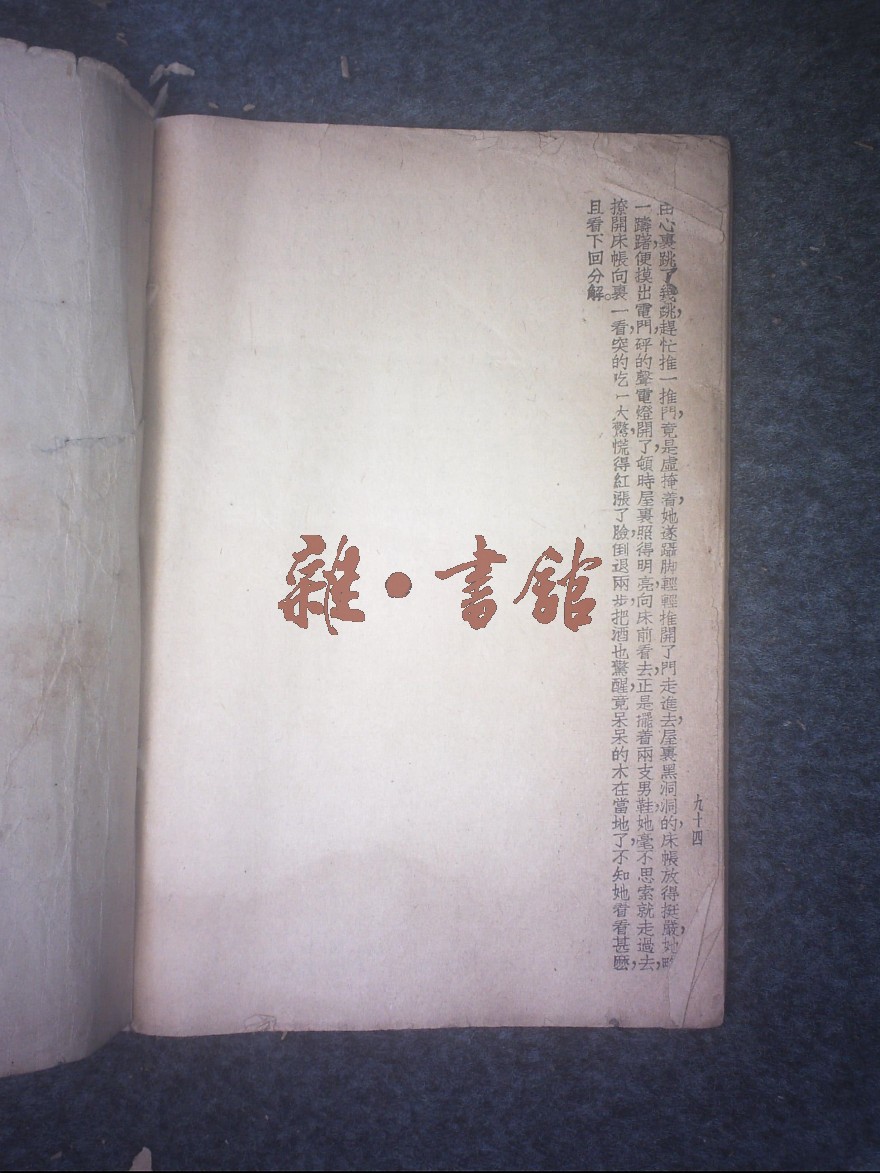 由心裏跳了幾跳，趕忙推一推門，竟是虛掩着，她遂躡脚輕輕推開了門走進去，屋裏黑洞洞的，床帳放得挺嚴，她略
一躊躇，便摸出電門，砰的聲電燈開了，頓時屋裏照得明亮，向床前看去，正是擺着兩支男鞋，她毫不思索就走過去，
撩開床帳向裏一看，突的吃一大驚，慌得紅漲了臉，倒退兩步，把酒也驚醒，竟呆呆的木在當地了，不知她看看甚麽，
且看下回分解。
九十四
雜·書館